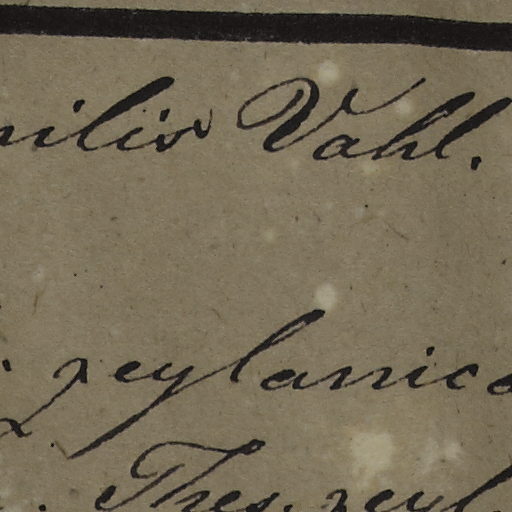 Vahl.
zeylanica
Thes. zeyl.